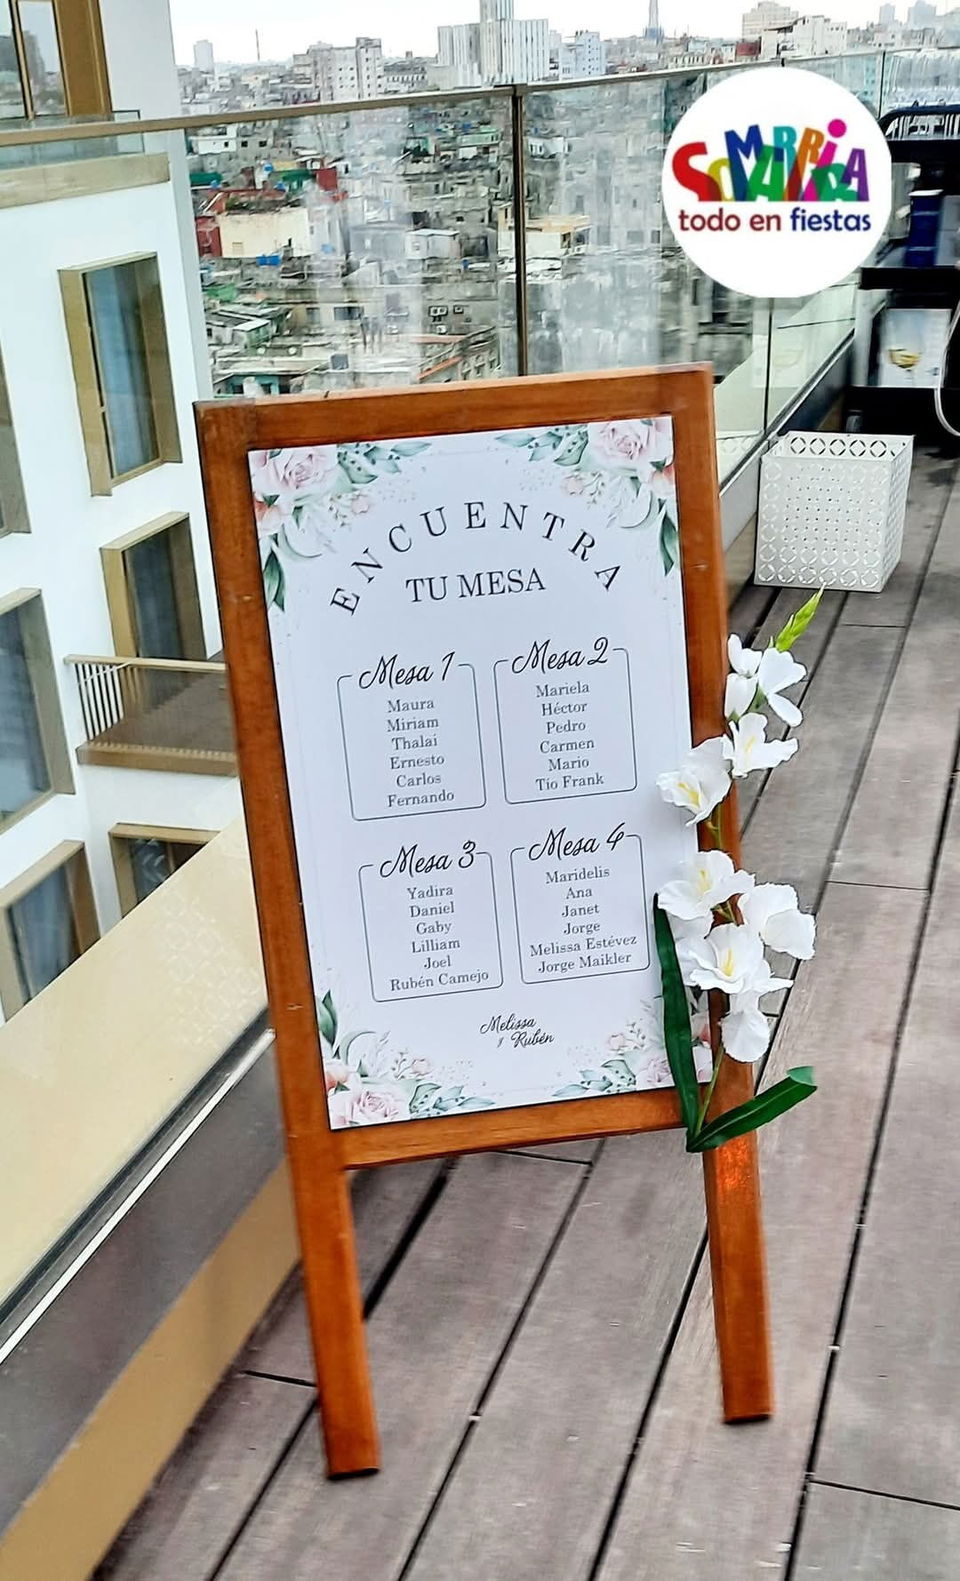 SOMARRIBA
todo en fiestas
ENCUENTRA
TU MESA
Mesa 1
Maura
Miriam
Thalai
Ernesto
Carlos
Fernando
Mesa 2
Mariela
Héctor
Pedro
Carmen
Mario
Tío Frank
Mesa 3
Yadira
Daniel
Gaby
Lilliam
Joel
Rubén Camejo
Mesa 4
Maridelis
Ana
Janet
Jorge
Melissa Estévez
Jorge Maikler
Melissa
y Rubén